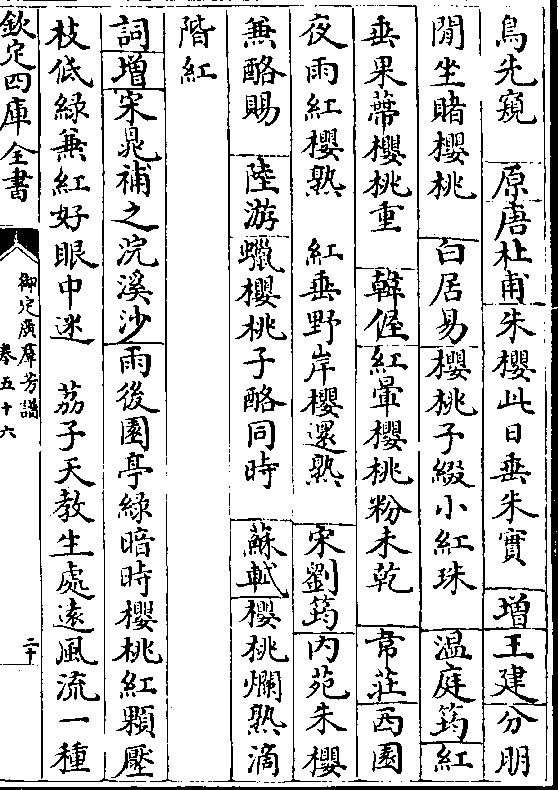 鳥先窺　原唐杜甫朱櫻此日垂朱實　增王建分明
閒坐賭櫻桃　白居易櫻桃子綴小紅珠　溫庭筠紅
垂果蔕櫻桃重　韓偓紅暈櫻桃粉未乾　韋莊西園
夜雨紅櫻熟　紅垂野岸櫻還熟　宋劉筠內苑朱櫻
兼酪賜　陸游蠟櫻桃子酪同時　蘇軾櫻桃爛熟滴
階紅
詞增宋晁補之浣溪沙雨後園亭綠暗時櫻桃紅顆壓
枝低綠兼紅好眼中迷　荔子天教生處遠風流一種
欽定四庫全書
御定廣羣芳譜
卷五十六
二十